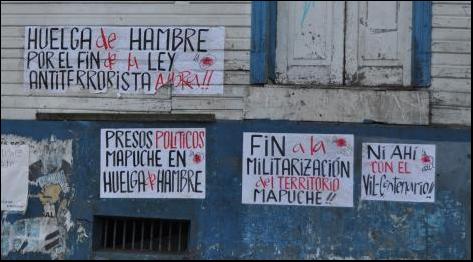 HUELGA de HAMBRE
POR EL FIN de la LEY
ANTITERRORISTA AHORA!!
PRESOS POLITICOS
MAPUCHE EN
HUELGA de HAMBRE
FIN a la
MILITARIZACIÓN
del TERRITORIO
MAPUCHE!!
Ni AHÍ
CON EL
Vil-Centenario!